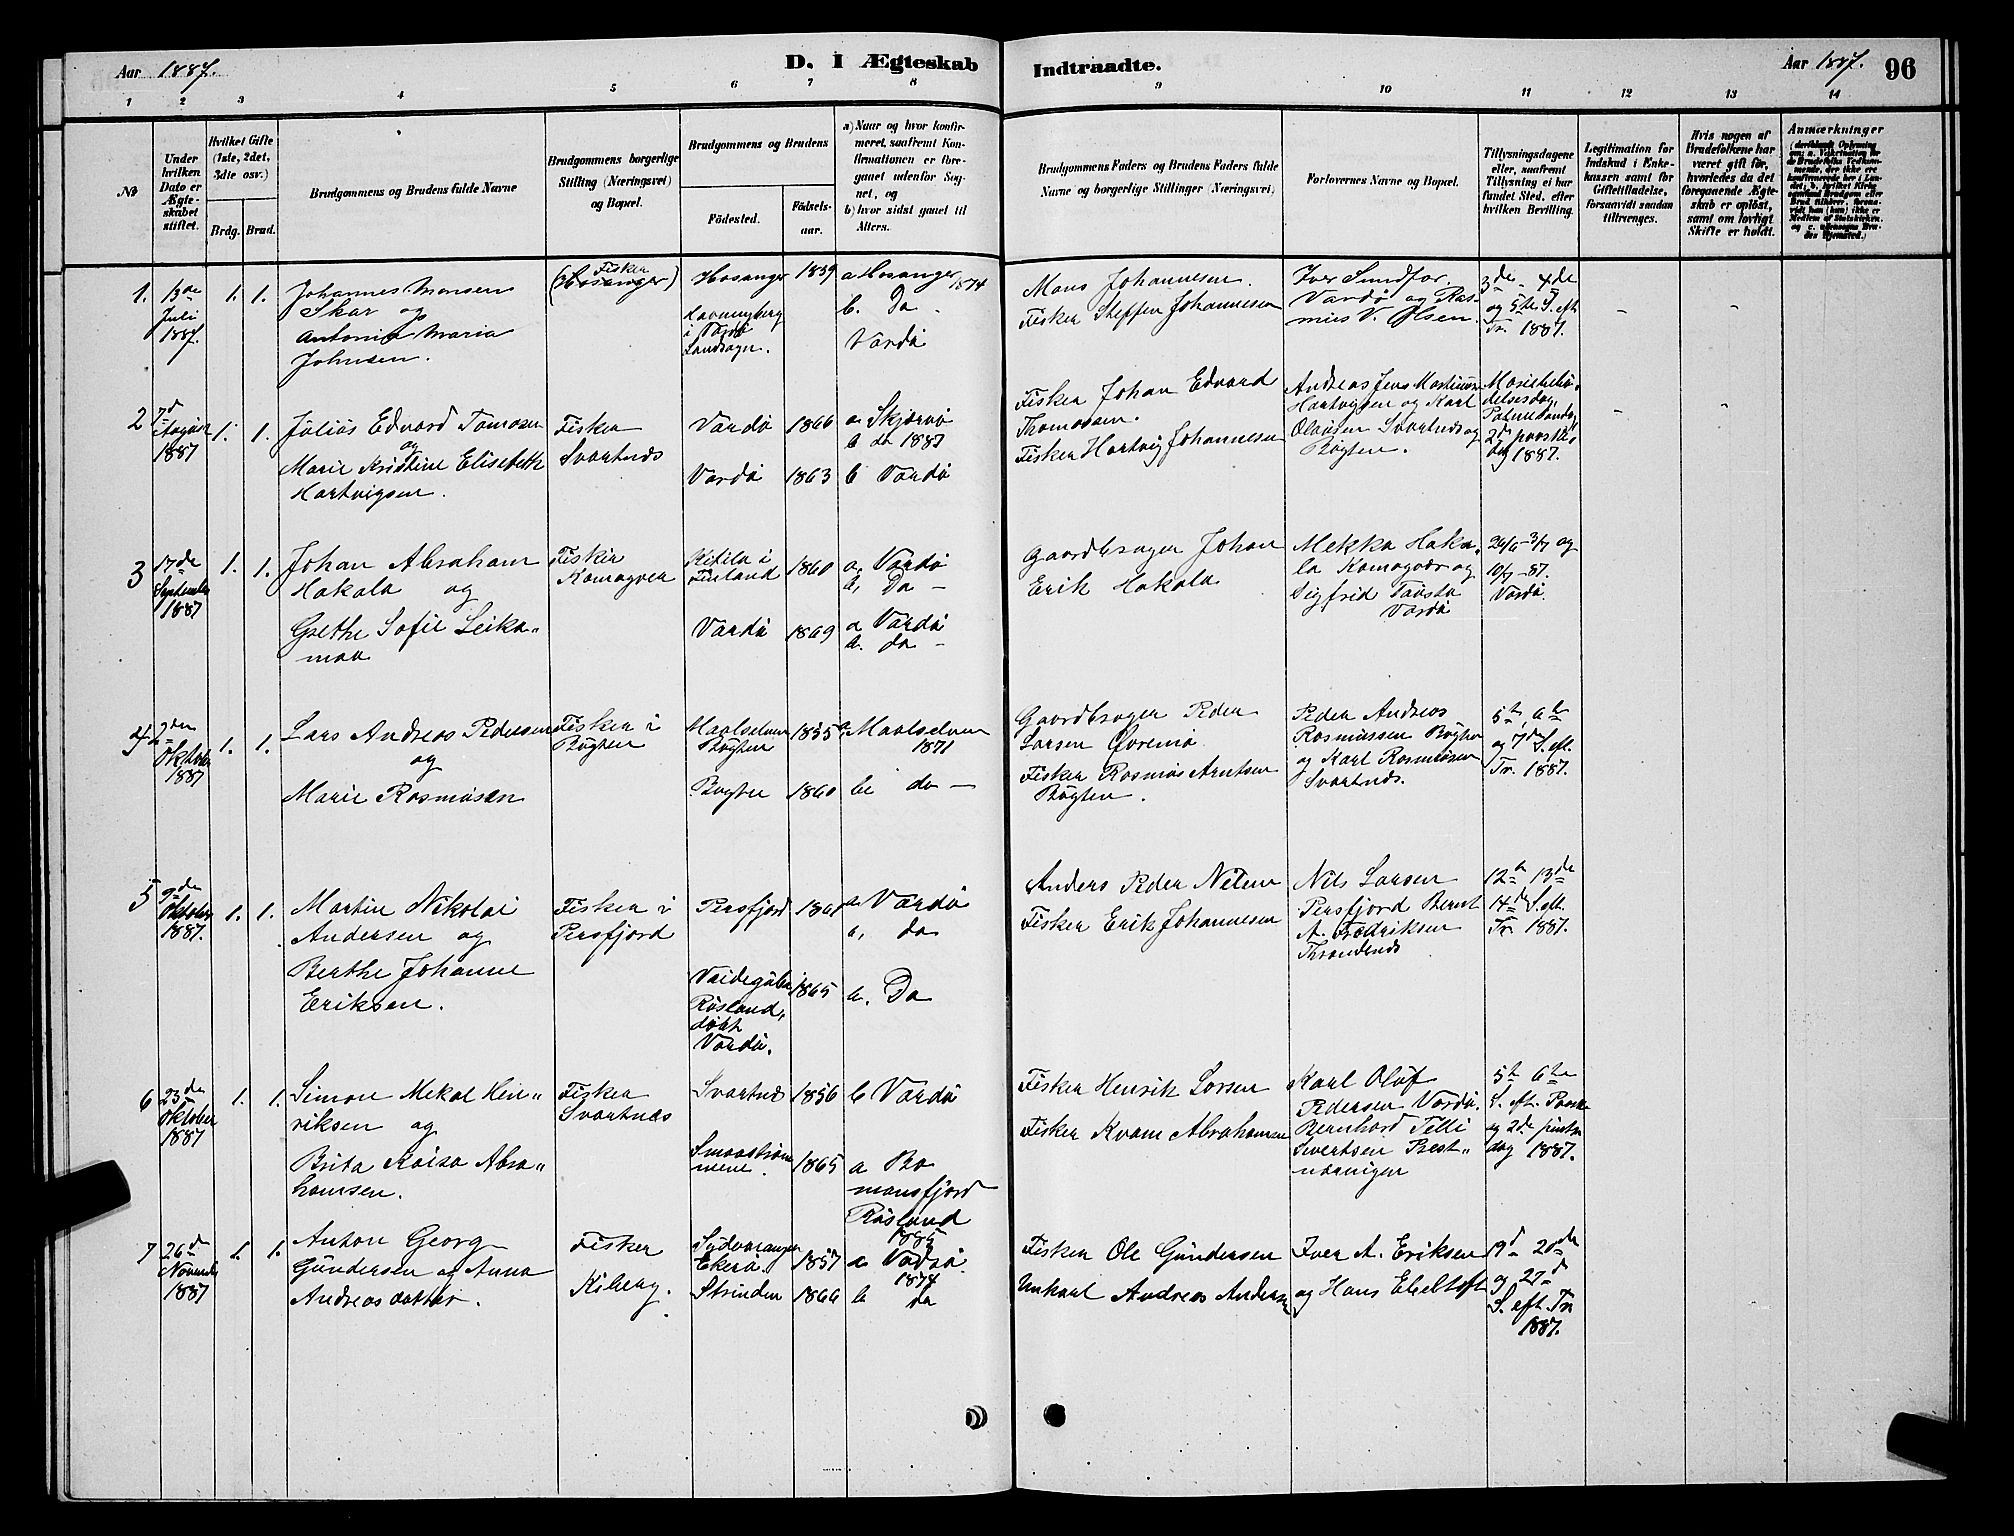 Aar 1887.
D. I Ægteskab
Indtraadte.
Aar 1887.
96
1 2 3 4 5 6 7 8 9 10 11 12 13 14
No
Under hvilken Dato er Ægteskabet stiftet.
Hvilket Gifte (1ste, 2det, 3die osv.)
Brdg.
Brud.
Brudgommens og Brudens fulde Navne
Brudgommens borgerlige Stilling (Næringsvei) og Bopæl.
Brudgommens og Brudens
Födested.
Födselsaar.
a) Naar og hvor konfirmeret, saafremt Konfirmationen er foregaaet udenfor Sognet, og
b) hvor sidst gaaet til Alters.
Brudgommens Faders og Brudens Faders fulde Navne og borgerlige Stillinger (Næringsvei)
Forlovernes Navne og Bopæl.
Tillysningsdagene eller, saafremt Tillysning ei har fundet Sted, efter hvilken Bevilling.
Legitimation for Indskud i Enkekassen samt for Giftetilladelse, forsaavidt saadan tiltrænges.
Hvis nogen af Brudefolkene har været gift før, hvorledes da det foregaaende Ægteskab er oplöst, samt om lovligt Skifte er holdt.
Anmærkninger
1.
13de
Juli
1887.
1. 1.
Johannes Monsen
Skar og
Antonia Maria
Johnsen.
Fisker
(Hosanger)
Hosanger 1839
Havningberg
i Vardø
Landsogn.
a Hosanger 1874
b. Da
Vardö
Mons Johannesen
Fisker Steffen Johannesen
Iver Sundfor
Vardö og Rasmus V. Olsen.
3de 4de
og 5te S. eft
Tr. 1887.
2
7d
August
1887
1. 1.
Julius Edvard Tomasen
og
Marie Kristine Elisabeth
Hartvigsen.
Fisker
Svartnæs
Vardö 1866
Vardö 1863
a Skjærvö
b da 1887
b Vardö
Fisker Johan Edvard
Thomassen.
Fisker Hartvig Johannesen
Andreas Jens Martinus
Hartvigsen og Karl
Olausen Svartnæs og
Bugten.
Mariæ bebudelsesdag,
Palmesöndag,
2den paaskedag 1887.
3
17de
September
1887
1. 1.
Johan Abraham
Hakala og
Grethe Sofie Leikamaa
Fisker
Komagvær
Kitila i
Finland 1860
Vardö 1869
a, Vardö
b, Da
a Vardö
b. da
Gaardbruger Johan
Erik Hakala
Mekka Hakala Komagvær og
Sigfrid
Vardö
26/6 - 3/7 og
10/7 -87.
Vardö.
4
2den
Oktober
1887
1. 1.
Lars Andreas Pedersen
og
Marie Rasmusen
Fisker i
Bugten
Maalselven
Bugten 1835
Bugten 1860
a. Maalselven
1871
b, do
Gaardbruger Peder
Larsen Øvremo
Fisker Rasmus Arntsen
Bugten.
Peder Andreas
Rasmussen Bugten
og Karl Rasmussen
Svartnæs.
5te, 6te
og 7de S. eft.
Tr. 1887.
5
9de
Oktober
1887.
1. 1.
Martin Nikolai
Andersen og
Berthe Johanne
Eriksen.
Fisker i
Persfjord
Persfjord 1861
Vaidaguba
Rusland,
döbt
Vardö. 1865
a. Vardö
b, da
b. Da
Anders Peder Nilsen
Fisker Erik Johannesen
Nils Larsen
Persfjord Bernt
A. Fredriksen
Thrandenæs
12te 13de
14de S. eft.
Tr. 1887.
6
23de
Oktober
1887
1. 1.
Simon Mekal Henriksen og
Brita Kaisa Abrahamsen.
Fisker
Svartnæs
Svartnæs 1856
Smaaströmmene. 1865
b Vardö
a Bomansfjord
Rusland
1885
Fisker Henrik Larsen
Fisker Kvam Abrahamsen
Karl Oluf
Pedersen Vardö.
Bernhard Tilli
Sivertsen Prestnæringen
5te 6te
S. eft. Paaske
og 2de pintsedag 1887.
7
26de
November
1887
1. 1.
Anton Georg
Gundersen og Anna
Andreasdatter.
Fisker
Kiberg.
Sydvaranger
Ekerö 1857
Strinden 1866
a. Vadsö
1874
b da
Fisker Ole Gundersen
Unkarl Andreas Andersen
Iver A. Eriksen
og Hans Ebeltoft
19de 20de
og 21de
S. eft. Tr.
1887.